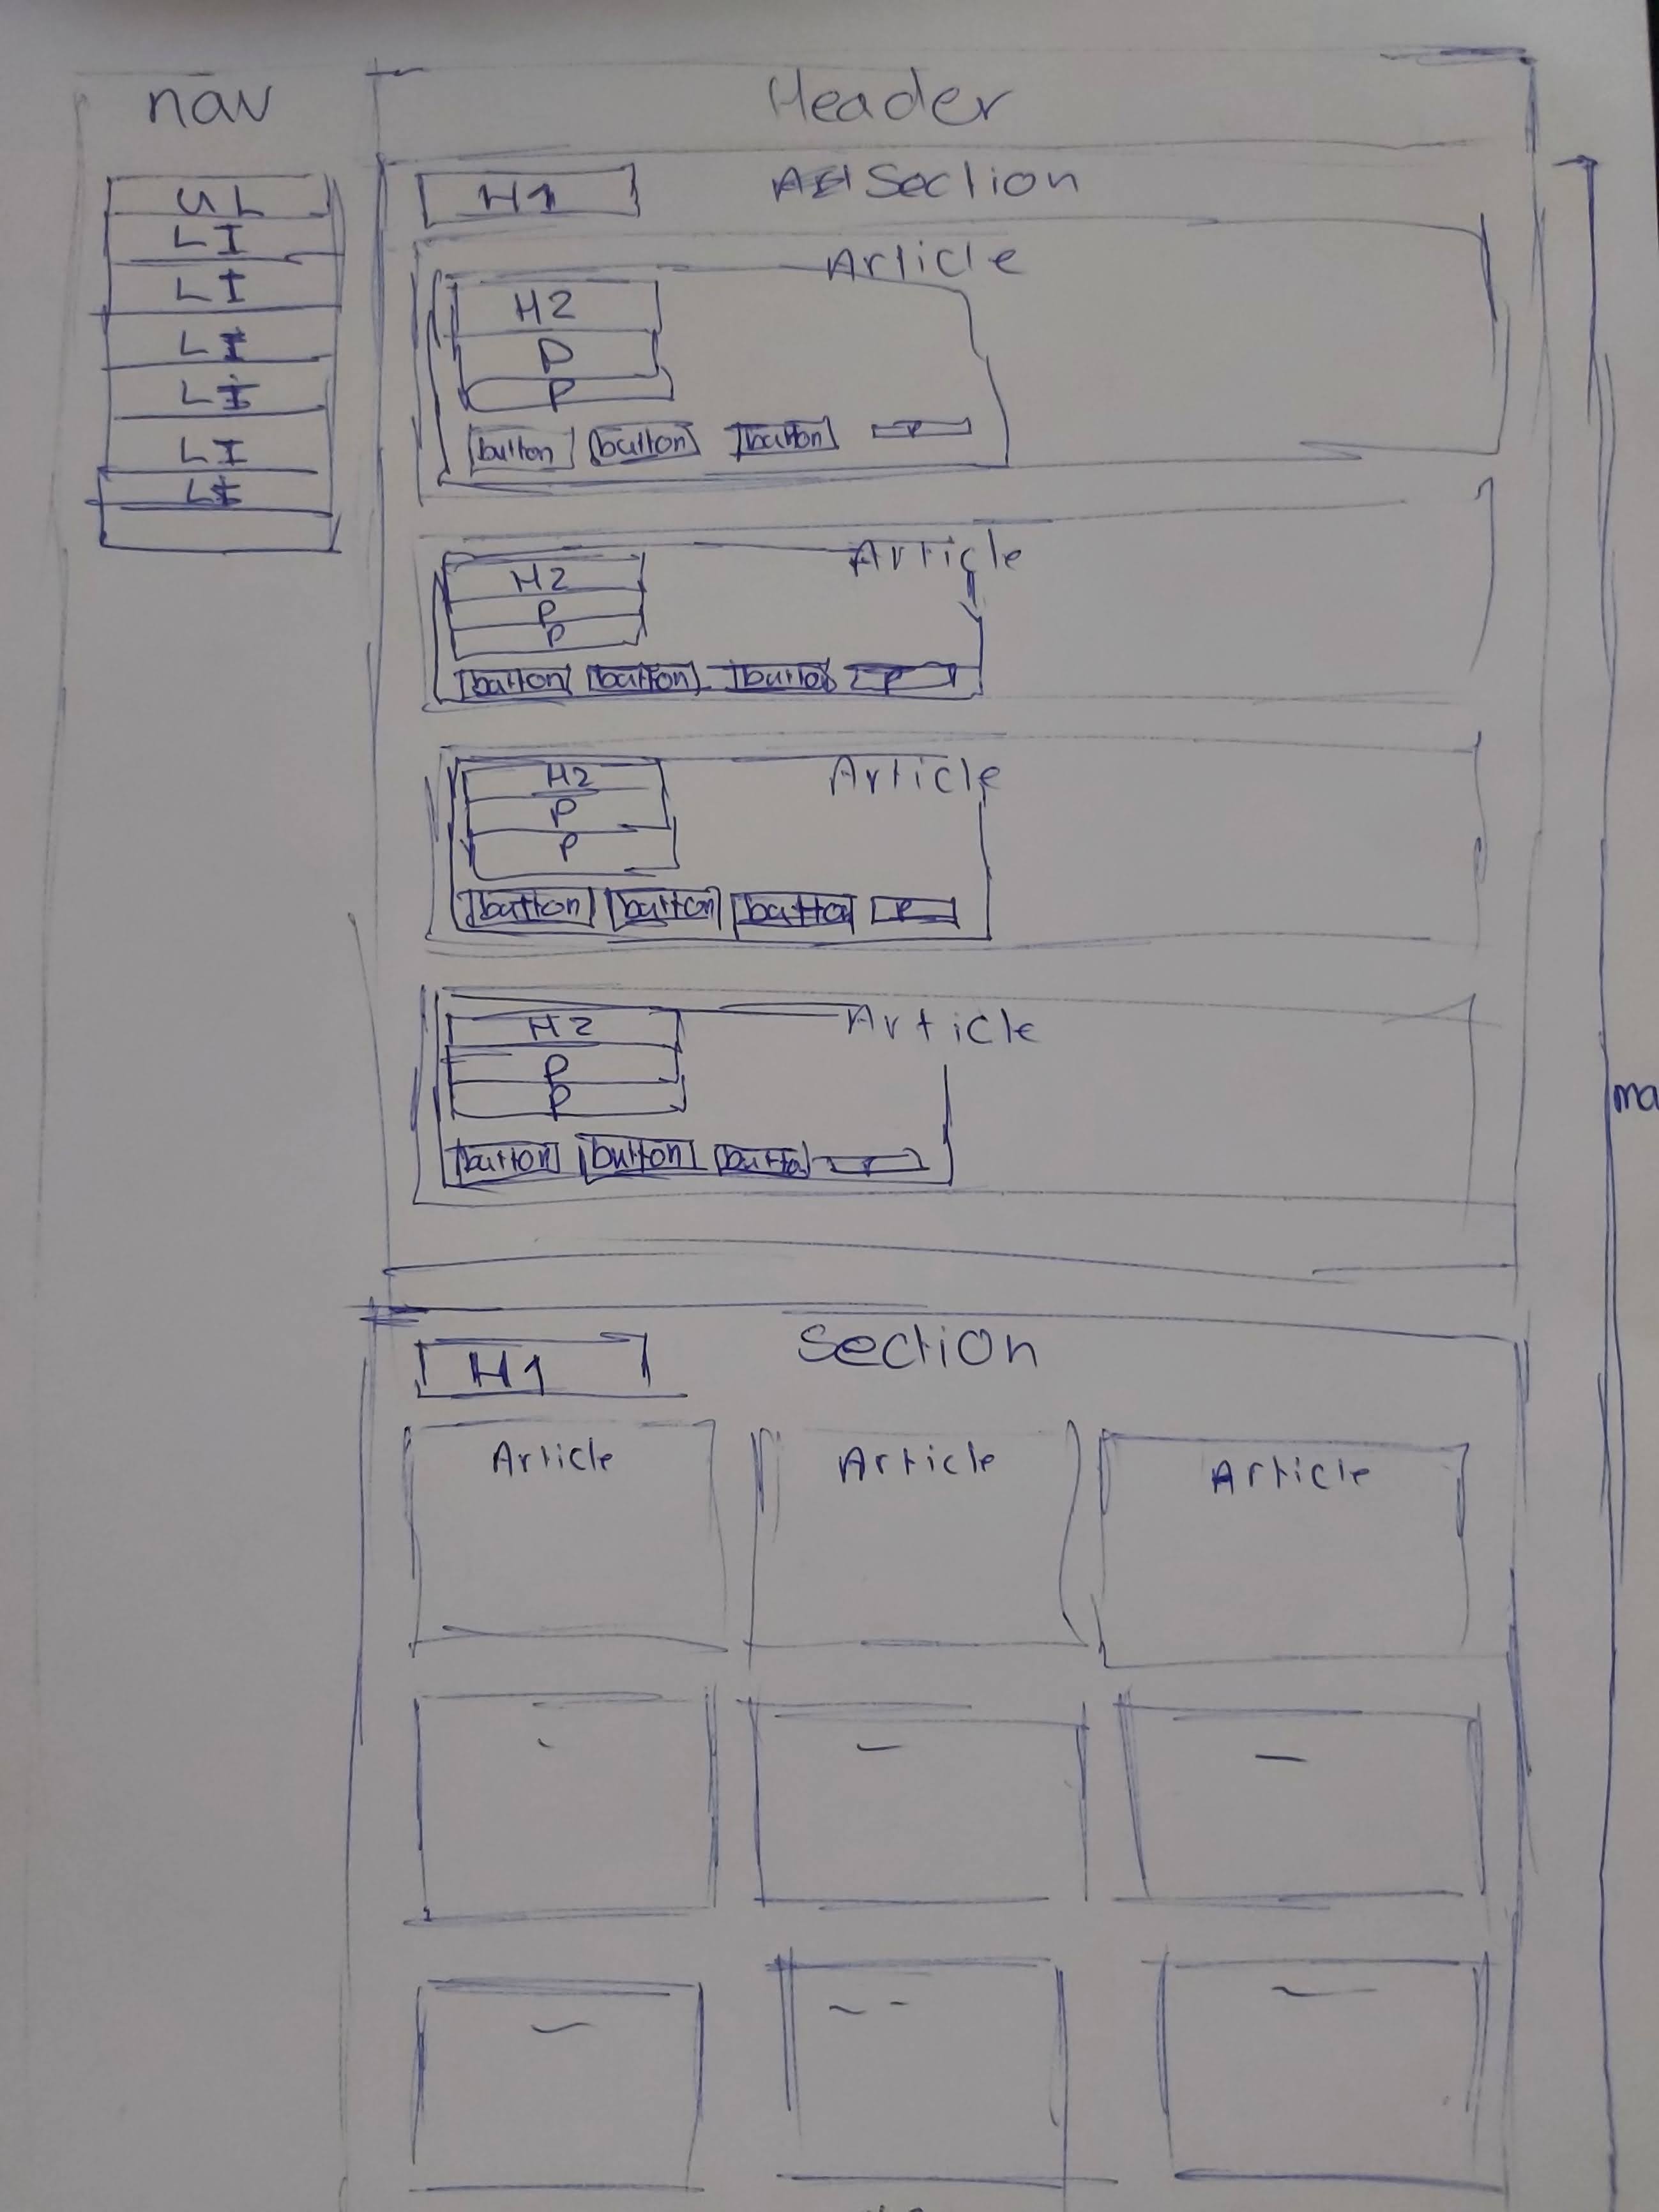 nav
Header
UL
LI
LI
LI
LI
LI
LI
H1
Section
Article
H2
P
P
button button button P
Article
H2
P
P
button button button P
Article
H2
P
P
button button button P
Article
H2
P
P
button button button P
ma
Section
H1
Article Article Article